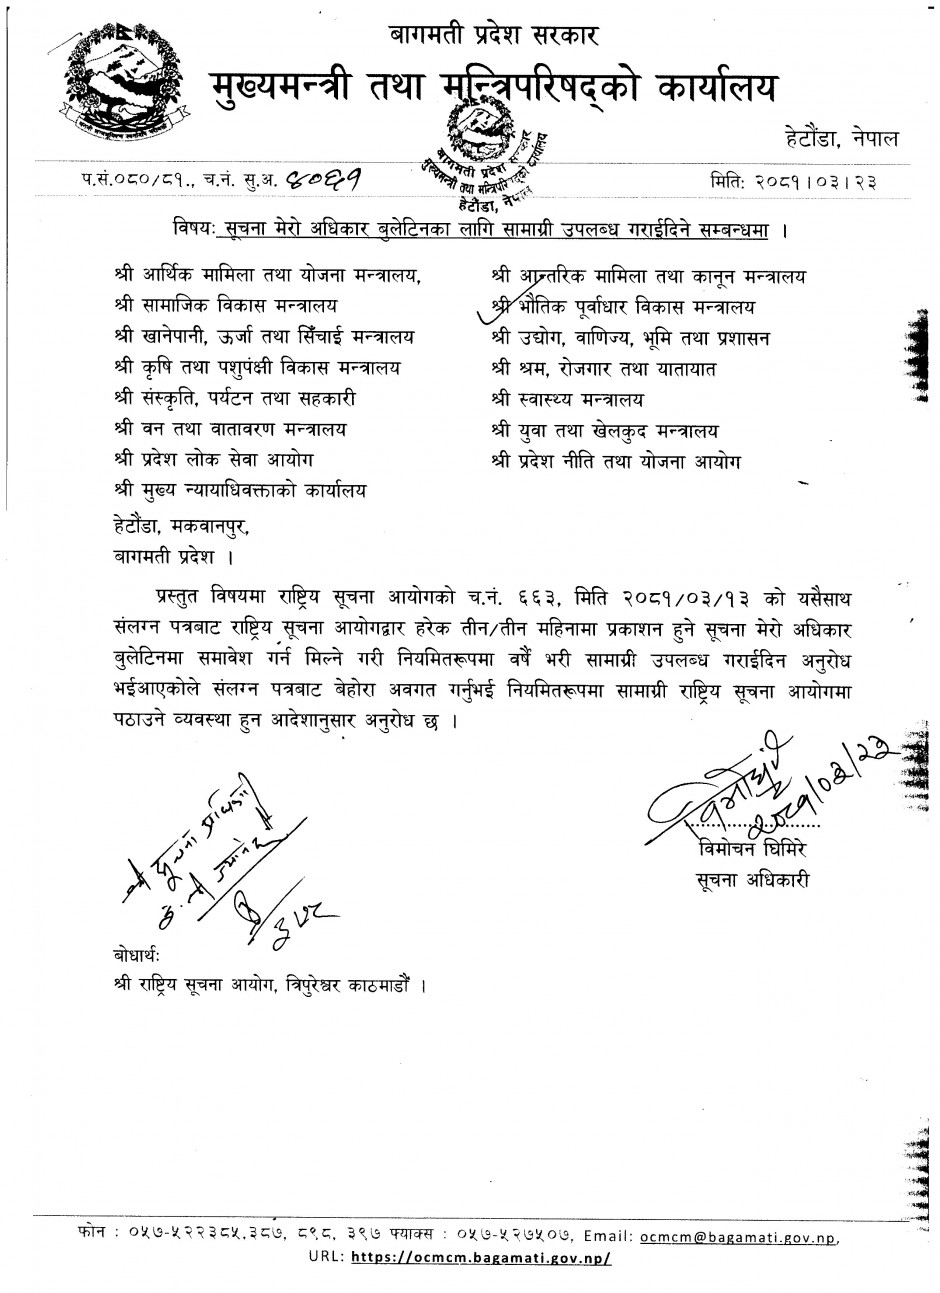 बागमती प्रदेश सरकार
मुख्यमन्त्री तथा मन्त्रिपरिषद्को कार्यालय
हेटौंडा, नेपाल
बागमती प्रदेश सरकार
मुख्यमन्त्री तथा मन्त्रिपरिषद्को कार्यालय
हेटौंडा, नेपाल
प.सं.०८०/८१., च.नं. सु.अ. ४०६१
मिति: २०८१।०३।२३
विषय: सूचना मेरो अधिकार बुलेटिनका लागि सामाग्री उपलब्ध गराईदिने सम्बन्धमा ।
श्री आर्थिक मामिला तथा योजना मन्त्रालय, श्री आन्तरिक मामिला तथा कानून मन्त्रालय
श्री सामाजिक विकास मन्त्रालय श्री भौतिक पूर्वाधार विकास मन्त्रालय
श्री खानेपानी, ऊर्जा तथा सिँचाई मन्त्रालय श्री उद्योग, वाणिज्य, भूमि तथा प्रशासन
श्री कृषि तथा पशुपंक्षी विकास मन्त्रालय श्री श्रम, रोजगार तथा यातायात
श्री संस्कृति, पर्यटन तथा सहकारी श्री स्वास्थ्य मन्त्रालय
श्री वन तथा वातावरण मन्त्रालय श्री युवा तथा खेलकुद मन्त्रालय
श्री प्रदेश लोक सेवा आयोग श्री प्रदेश नीति तथा योजना आयोग
श्री मुख्य न्यायाधिवक्ताको कार्यालय
हेटौंडा, मकवानपुर,
बागमती प्रदेश ।
प्रस्तुत विषयमा राष्ट्रिय सूचना आयोगको च.नं. ६६३, मिति २०८१/०३/१३ को यसैसाथ
संलग्न पत्रबाट राष्ट्रिय सूचना आयोगद्वार हरेक तीन/तीन महिनामा प्रकाशन हुने सूचना मेरो अधिकार
बुलेटिनमा समावेश गर्न मिल्ने गरी नियमितरूपमा वर्षै भरी सामाग्री उपलब्ध गराईदिन अनुरोध
भईआएकोले संलग्न पत्रबाट बेहोरा अवगत गर्नुभई नियमितरूपमा सामाग्री राष्ट्रिय सूचना आयोगमा
पठाउने व्यवस्था हुन आदेशानुसार अनुरोध छ ।
२०८१/०३/२३
विमोचन घिमिरे
सूचना अधिकारी
श्री सूचना
बोधार्थ:
श्री राष्ट्रिय सूचना आयोग, त्रिपुरेश्वर काठमाडौं ।
फोन : ०५७-५२२३८५,३८७, ८९८, ३९७ फ्याक्स : ०५७-५२७५०७, Email: ocmcm@bagamati.gov.np,
URL: https://ocmcm.bagamati.gov.np/